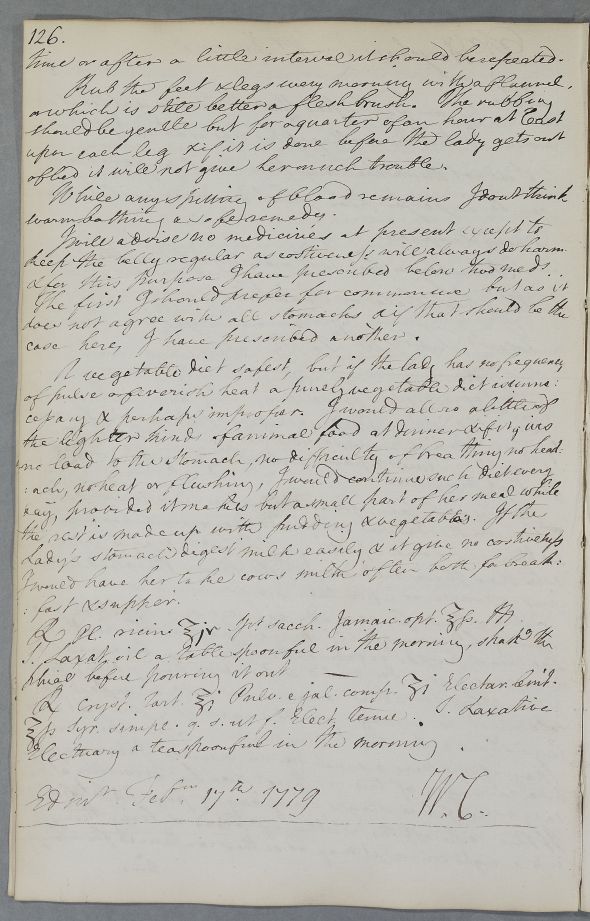 126.
time or after a little interval it should be repeated.
Rub the feet & legs every morning with a flannel,
or which is still better a fleshbrush. The rubbing
should be gentle but for a quarter of an hour at least
upon each leg & if it is done before the lady gets out
of bed it will not give her much trouble.
While any spitting of blood remains I dont think
warm bathing a safe remedy.
I will advise no medicines at present except to
keep the belly regular as costiveness will always do harm
& for this purpose I have prescribed below two meds.
The first I should prefer for common use but as it
does not agree with all stomachs & if that should be the
case here, I have prescribed another.
A vegetable diet safest, but if the lady has no frequency
of pulse or feverish heat a purely vegetable diet is unne:
cessary & perhaps improper. I would allow a little of
the lighter kinds of animal food at dinner & if it gives
no load to the stomach, no difficulty of breathing no head:
:ach, no heat or flushing, I would continue such diet every
day, provided it makes but a small part of her meal while
the rest is made up with pudding & vegetables. If the
Lady's stomach digest milk easily & it give no costiveness
I would have her take cows milk often both for break:
:fast & supper.
℞ Ol. ricini ℥iv sacch. Jamaic. opt. ℥ſs. M
S. Laxat. oil a tablespoonful in the morning, shak.g the
phial before pouring it out —
℞ Cryst. Tart. ℥j Pulv. e jal. comp. ℥j Electar. lenit.
℥ſs Syr. simpl. q. s. ut f. Elect. tenue. S. Laxative
Electuary a teaspoonful in the morning.
Edinr. Febry 17th. 1779 W. C.